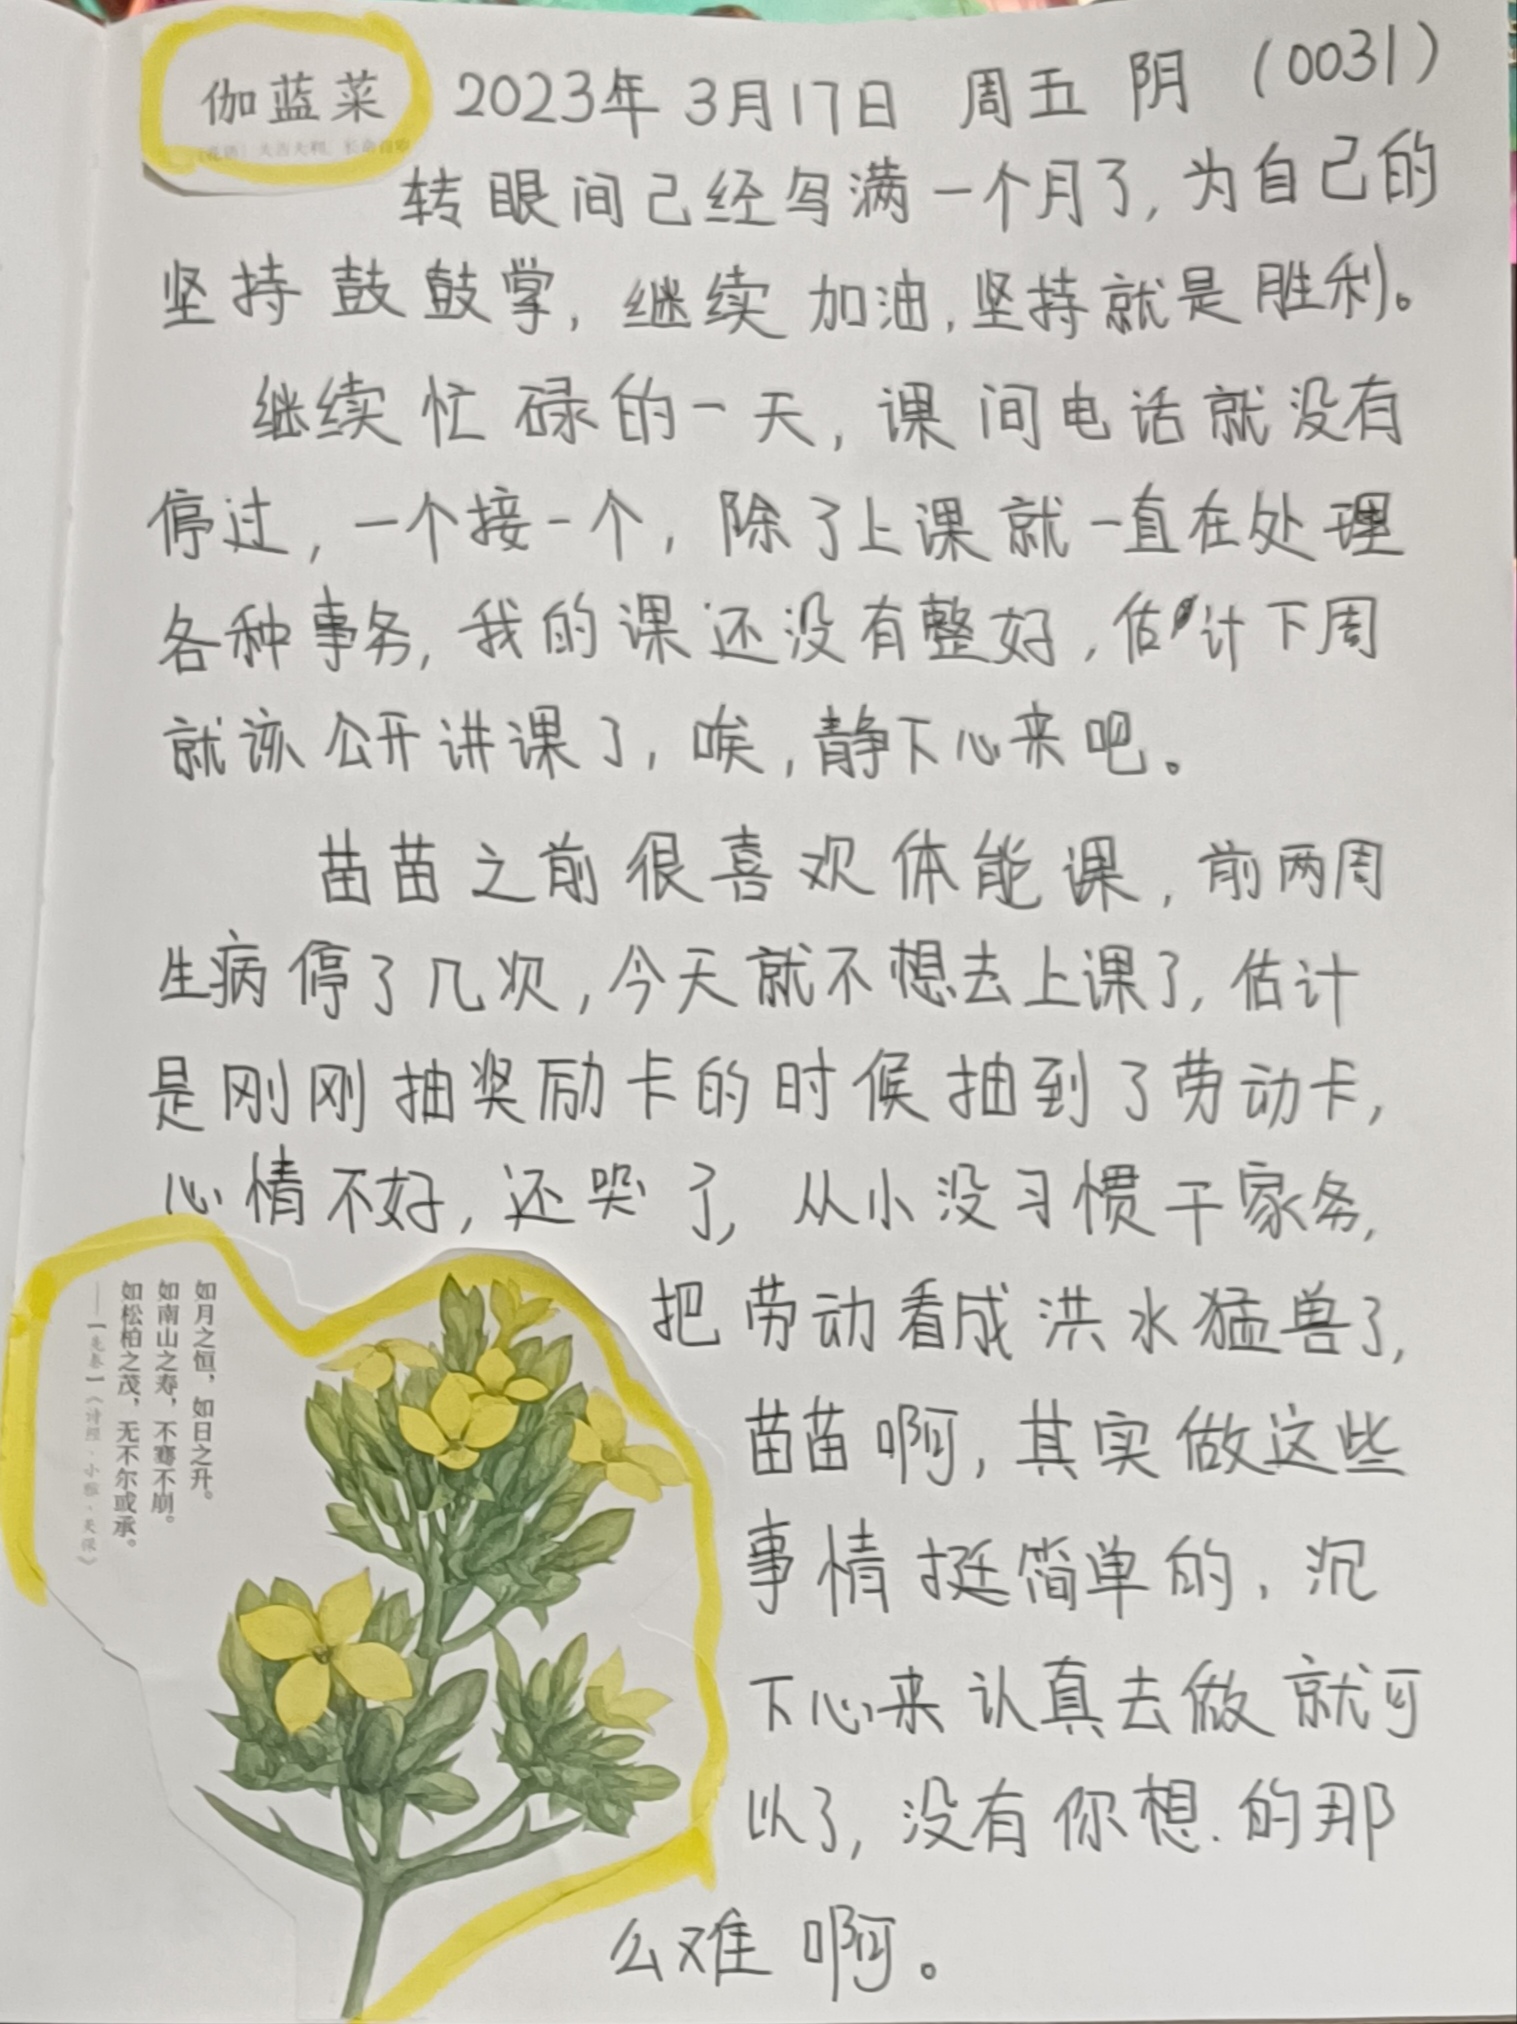 伽蓝菜 2023年 3月17日 周五 阴 （0031）
（花语）大吉大利、长命百岁
转眼间已经写满一个月了，为自己的
坚持鼓鼓掌，继续加油，坚持就是胜利。
继续忙碌的一天，课间电话就没有
停过，一个接一个，除了上课就一直在处理
各种事务，我的课还没有整好，估计下周
就该公开讲课了，唉，静下心来吧。
苗苗之前很喜欢体能课，前两周
生病停了几次，今天就不想去上课了，估计
是刚刚抽奖励卡的时候抽到了劳动卡，
心情不好，还哭了，从小没习惯干家务，
把劳动看成洪水猛兽了，
苗苗啊，其实做这些
事情挺简单的，沉
下心来认真去做就可
以了，没有你想的那
么难啊。
如月之恒，如日之升。
如南山之寿，不骞不崩。
如松柏之茂，无不尔或承。
——【先秦】《诗经·小雅·天保》